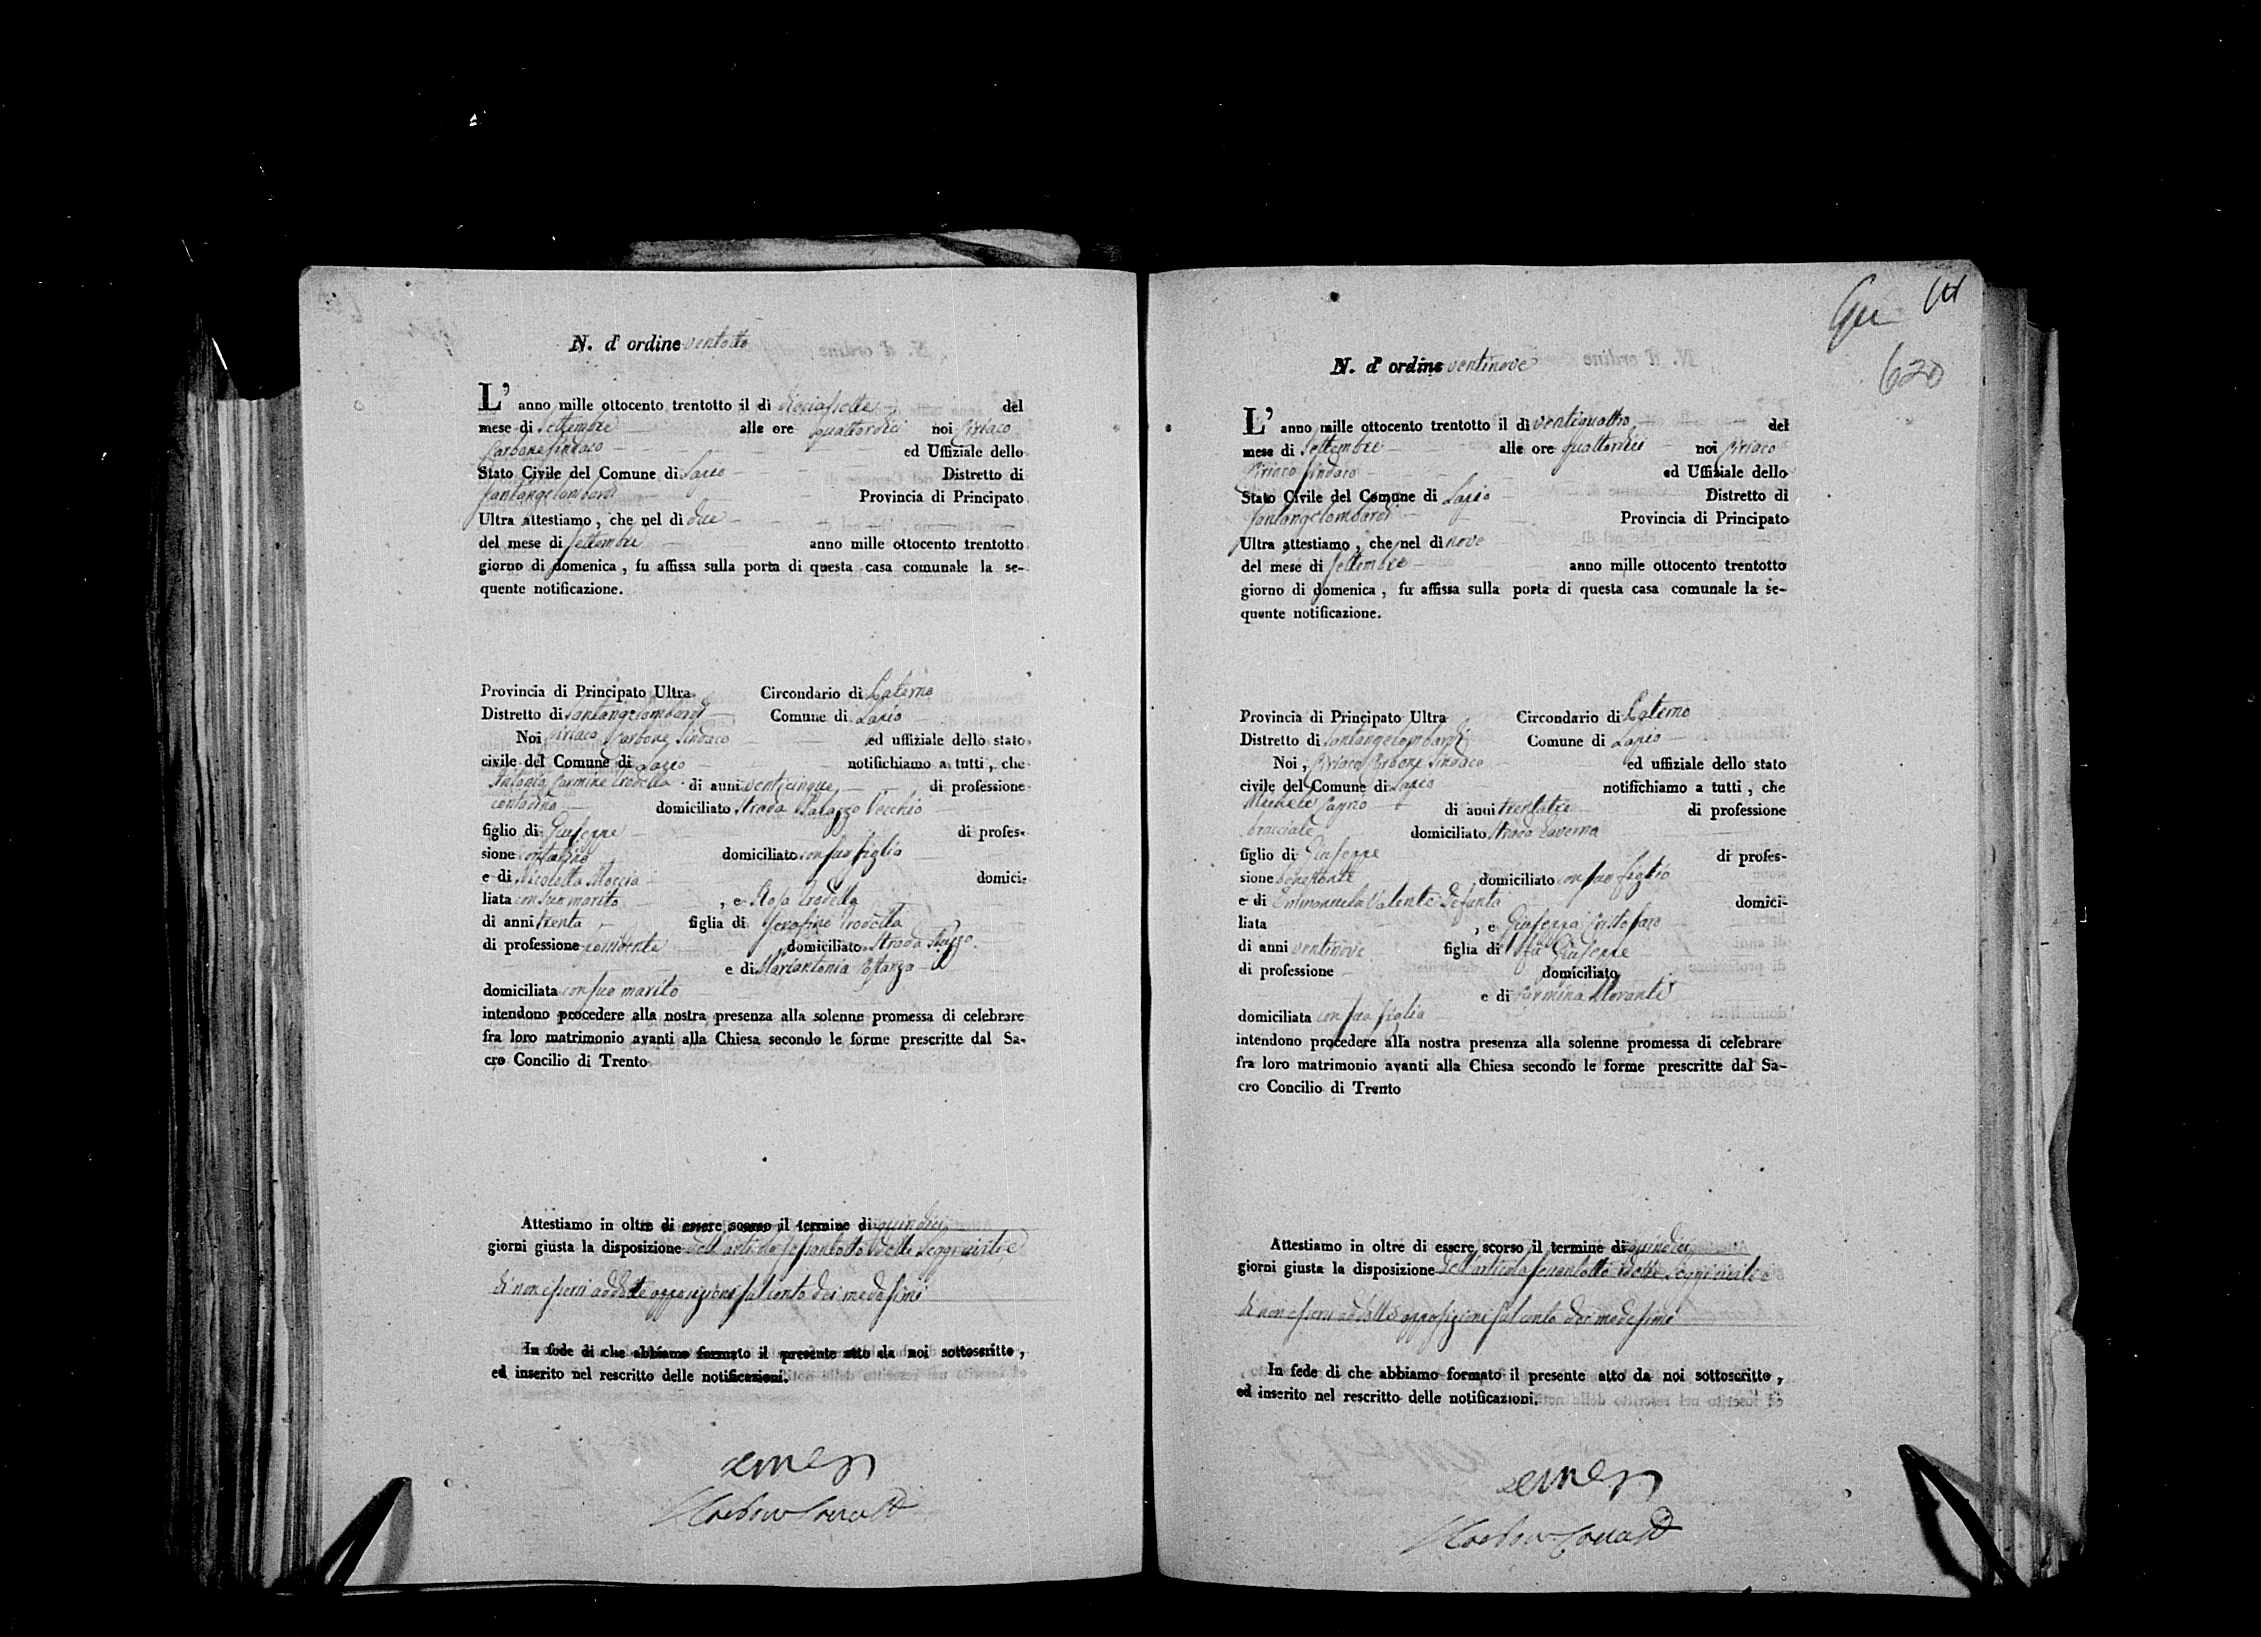 N. d' ordine ventotto
L' anno mille ottocento trentotto il di diciasette del
mese di Settembre alle ore quattordici noi Ciriaco
Carbone Sindaco ed Uffiziale dello
Stato Civile del Comune di Lapio Distretto di
Santangelombardi Provincia di Principato
Ultra attestiamo, che nel di due
del mese di Settembre anno mille ottocento trentotto
giorno di domenica, fu affissa sulla porta di questa casa comunale la se-
quente notificazione.
Provincia di Principato Ultra Circondario di Paterno
Distretto di Santangelombardi Comune di Lapio
Noi Ciriaco Carbone Sindaco ed uffiziale dello stato
civile del Comune di Lapio notifichiamo a tutti, che
Antonio Carmine Trodella di anni venticinque di professione
contadino domiciliato Strada Palazzo Vecchio
figlio di Giuseppe di profes-
sione contadino domiciliato con suo figlio
e di Nicoletta Moccia domici-
liata con suo marito, e Rosa Trodella
di anni trenta figlia di Serafino Trodella
di professione domiciliato Strada
e di Mariantonia Costanzo
domiciliata con suo marito
intendono procedere alla nostra presenza alla solenne promessa di celebrare
fra loro matrimonio avanti alla Chiesa secondo le forme prescritte dal Sa-
cro Concilio di Trento
Attestiamo in oltre di essere scorso il termine di quindici
giorni giusta la disposizione dell'articolo sessantotto delle Leggi civili e
di non essersi addotte opposizioni sul conto dei medesimi
In fede di che abbiamo formato il presente atto da noi sottoscritto,
ed inserito nel rescritto delle notificazioni.
620
N. d' ordine ventinove
L' anno mille ottocento trentotto il di ventiquattro del
mese di Settembre alle ore quattordici noi Ciriaco
Ciriaco Sindaco ed Uffiziale dello
Stato Civile del Comune di Lapio Distretto di
Santangelombardi Provincia di Principato
Ultra attestiamo, che nel di nove
del mese di Settembre anno mille ottocento trentotto
giorno di domenica, fu affissa sulla porta di questa casa comunale la se-
quente notificazione.
Provincia di Principato Ultra Circondario di Paterno
Distretto di Santangelombardi Comune di Lapio
Noi, Ciriaco Carbone Sindaco ed uffiziale dello stato
civile del Comune di Lapio notifichiamo a tutti, che
Michele di anni trentatre di professione
bracciale domiciliato Strada Taverna
figlio di Giuseppe di profes-
sione benestante domiciliato con suo figlio
e di Emmanuela Valente defunta domici-
liata, e Giuseppa Cristofaro
di anni ventinove figlia di Giuseppe
di professione domiciliato
e di Carmina Morante
domiciliata con sua figlia
intendono procedere alla nostra presenza alla solenne promessa di celebrare
fra loro matrimonio avanti alla Chiesa secondo le forme prescritte dal Sa-
cro Concilio di Trento
Attestiamo in oltre di essere scorso il termine di quindici
giorni giusta la disposizione dell'articolo sessantotto delle Leggi civili e
di non essersi addotte opposizioni sul conto dei medesimi
In fede di che abbiamo formato il presente atto da noi sottoscritto,
ed inserito nel rescritto delle notificazioni.